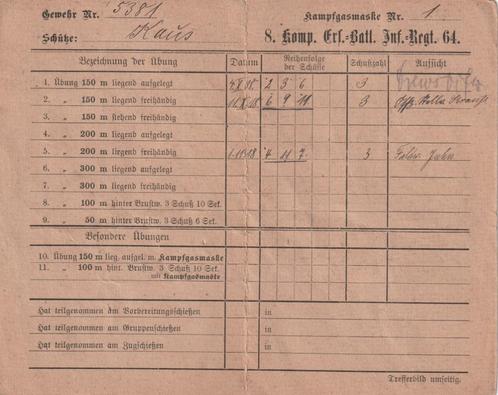 Gewehr Nr. 5381 Kampfgasmaske Nr. 1
Schütze: Kaus 8. Komp. Ers.-Batl. Inf.-Regt. 64.
Bezeichnung der Übung Datum Reihenfolge der Schüsse Schußzahl Aufsicht
1. Übung 150 m liegend aufgelegt 2 3 6 3
2. „ 150 m liegend freihändig 6 9 11 3
3. „ 150 m stehend freihändig
4. „ 200 m liegend aufgelegt
5. „ 200 m liegend freihändig 4 11 7 3
6. „ 300 m liegend aufgelegt
7. „ 300 m liegend freihändig
8. „ 100 m hinter Brustw. 3 Schuß 10 Sek.
9. „ 50 m hinter Brustw. 3 Schuß 6 Sek.
Besondere Übungen
10. Übung 150 m lieg. aufgel. m. Kampfgasmaske
11. „ 100 m hint. Brustw. 3 Schuß 10 Sek.
mit Kampfgasmaske
Hat teilgenommen am Vorbereitungsschießen in
Hat teilgenommen am Gruppenschießen in
Hat teilgenommen am Zugschießen in
Trefferbild umseitig.